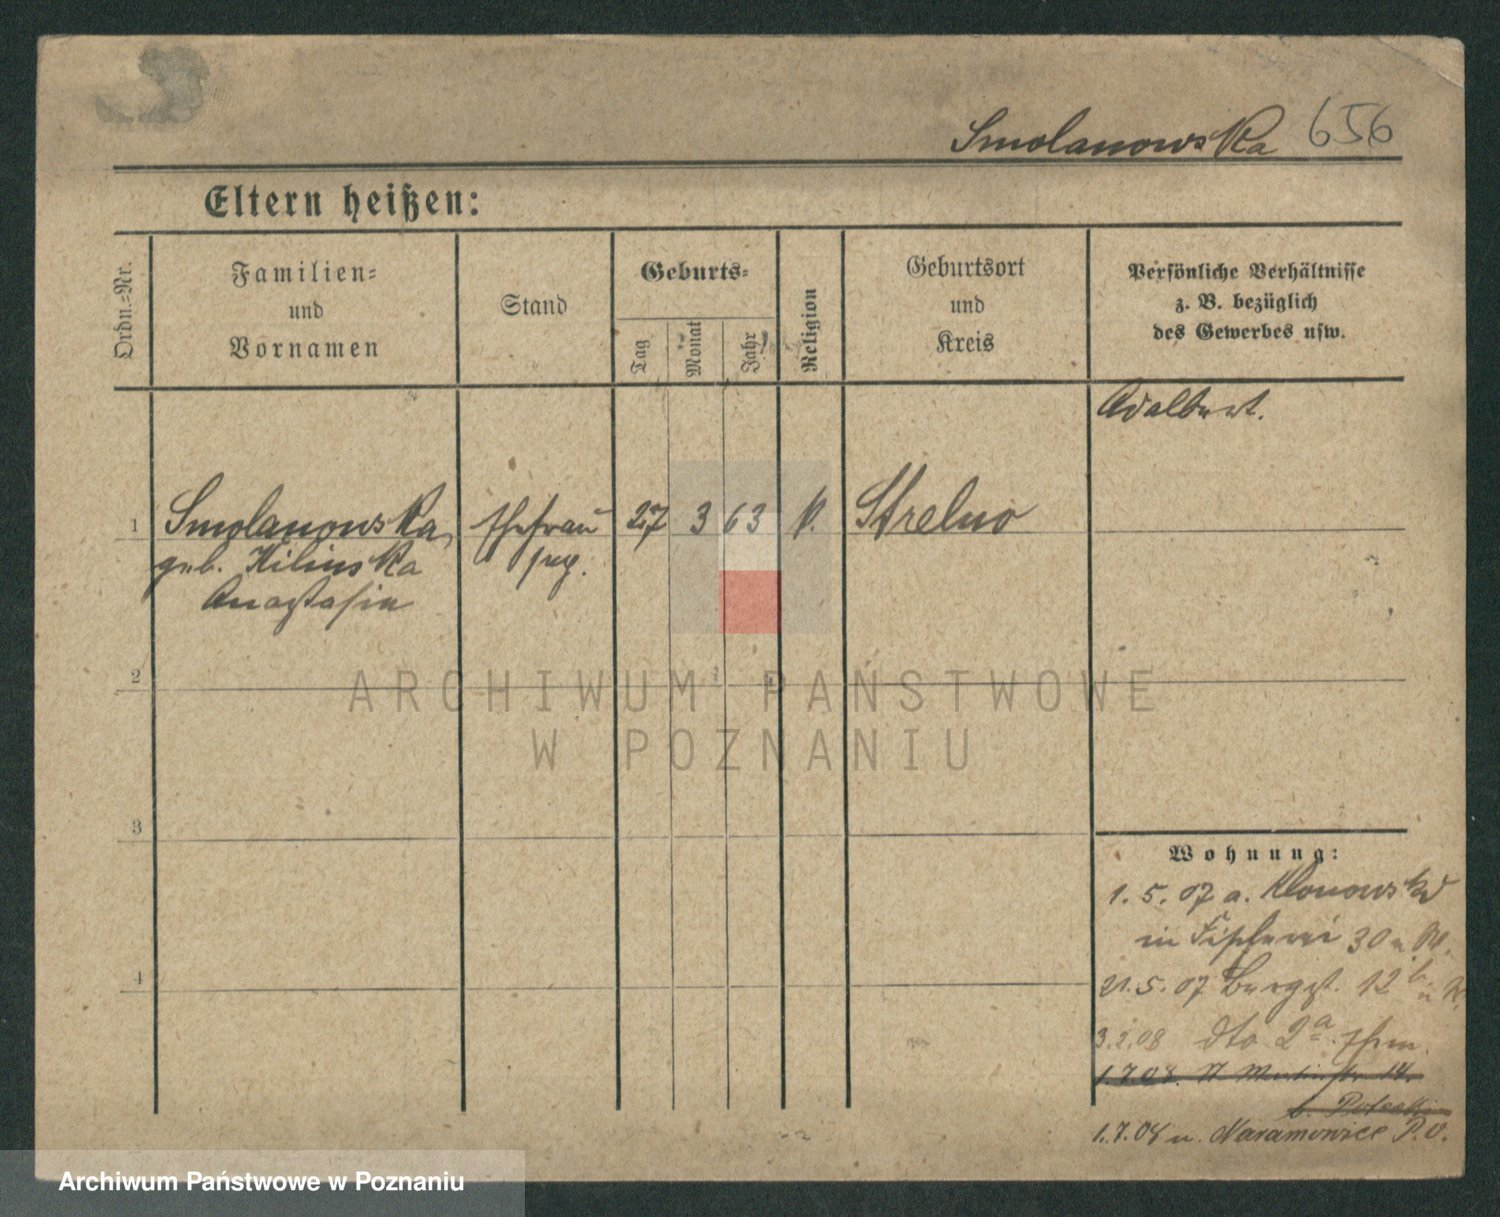 Smolanowska 656
Eltern heißen:
Ordn.-Nr.
Familien-
und
Vornamen
Stand
Geburts-
Tag
Monat
Jahr
Religion
Geburtsort
und
Kreis
Persönliche Verhältnisse
z. B. bezüglich
des Gewerbes usw.
Adalbert.
1 Smolanowska, Ehefrau 27 3 63 k. Strelno
geb. Kilinska
Anastasia
2
3
4
Wohnung:
1.5.07 a. Klonowski
in Fischerei 30
21.5.07 Bergst. 12 b
3.2.08 dto 2a
1.7.08. St Martinstr 14.
1.7.08 n. Naramowice P.O.
ARCHIWUM PAŃSTWOWE
W POZNANIU
Archiwum Państwowe w Poznaniu